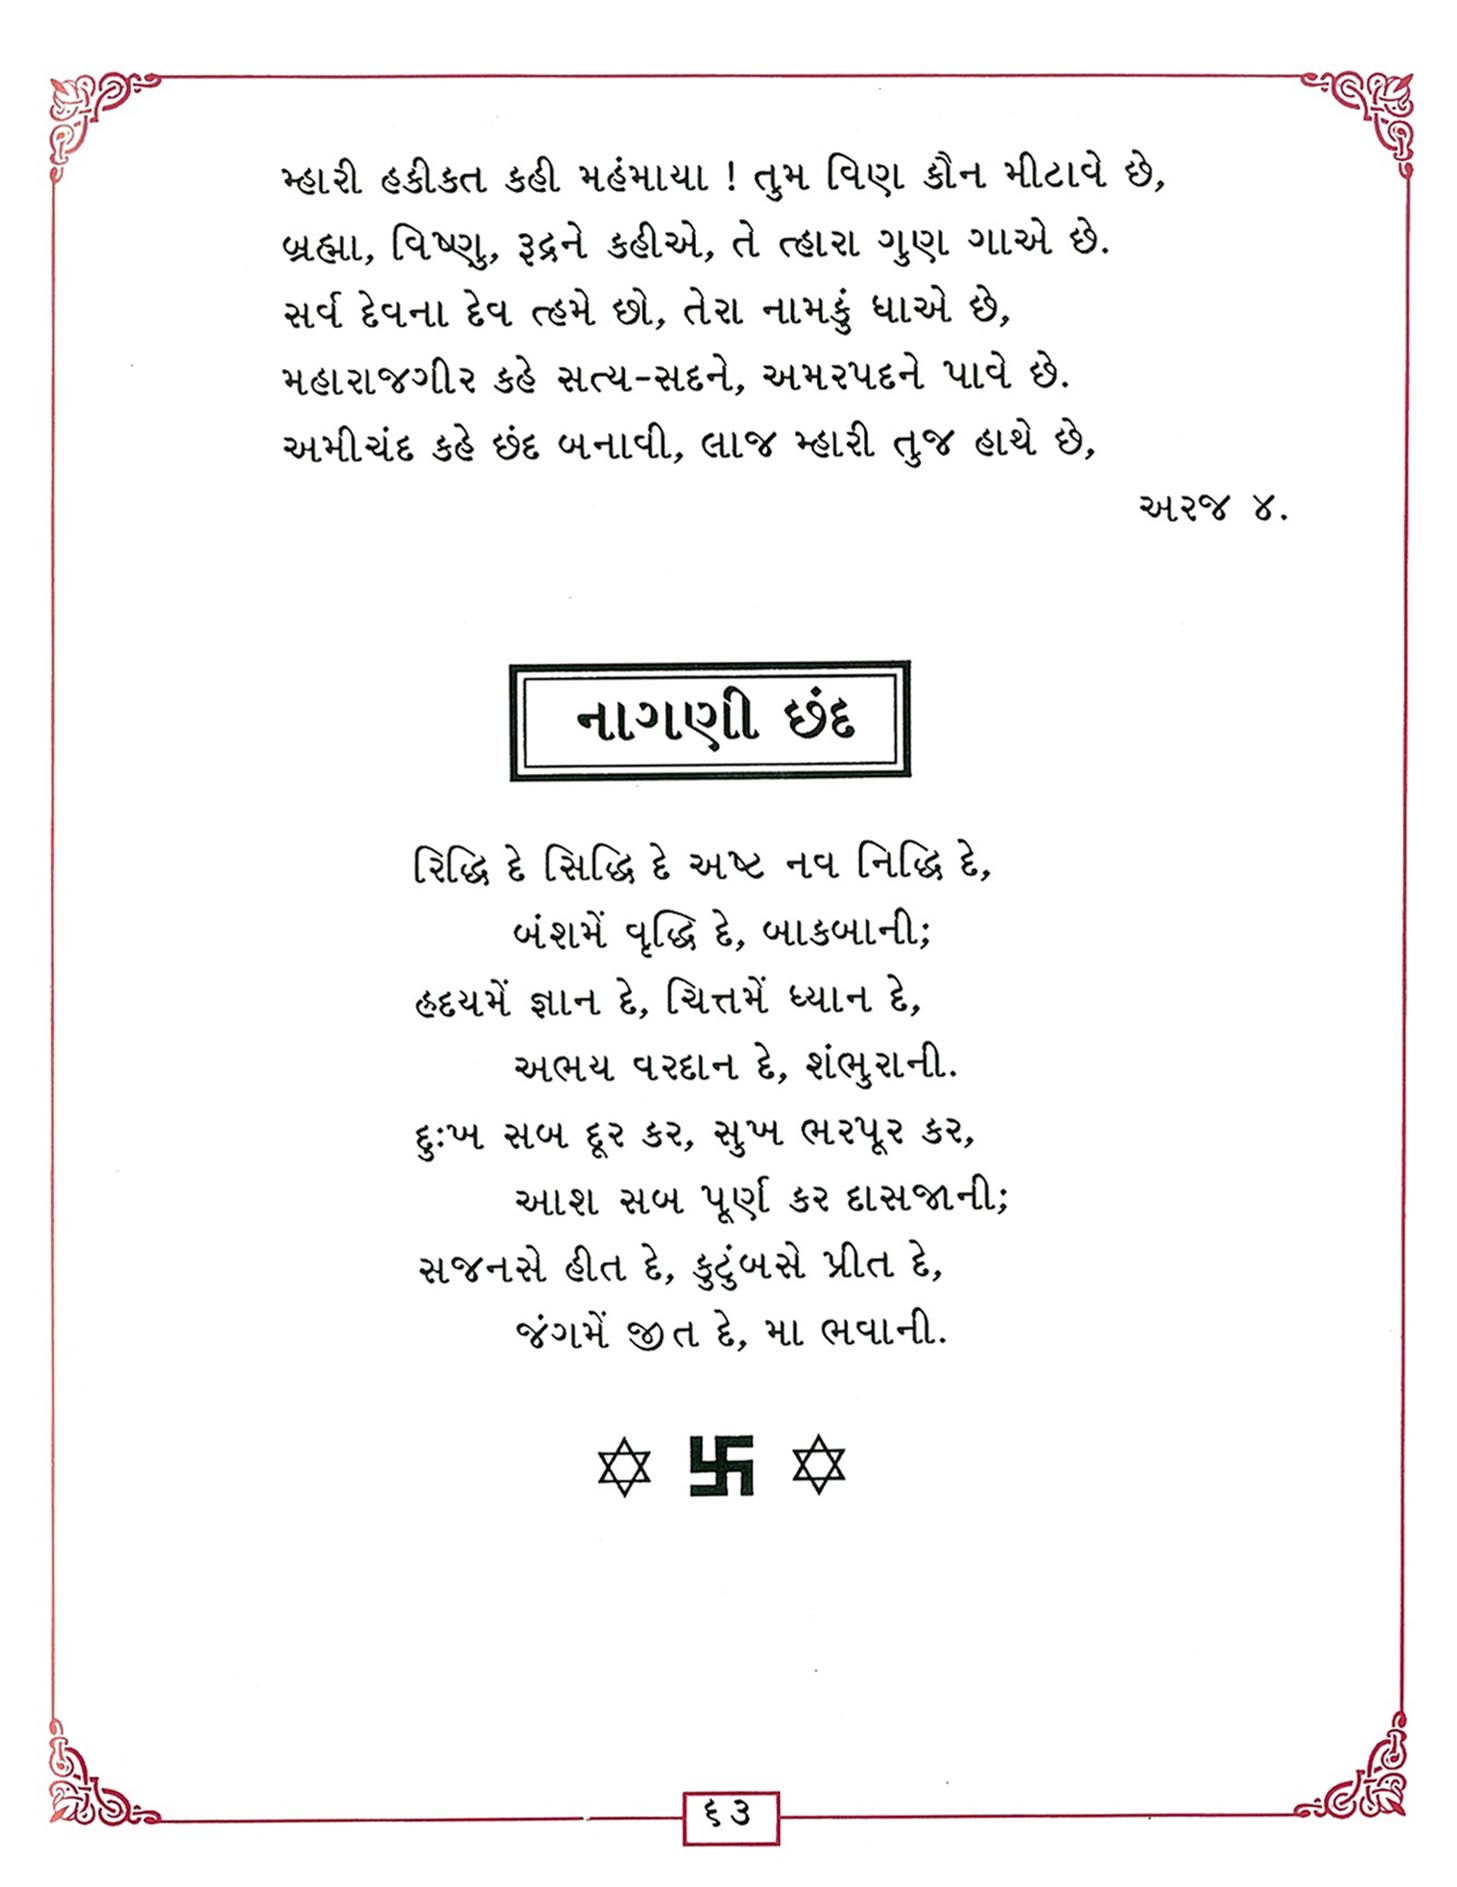 મ્હારી હકીકત કહી મહંમાયા ! તુમ વિણ કૌન મીટાવે છે,
બ્રહ્મા, વિષ્ણુ, રૂદ્રને કહીએ, તે ત્હારા ગુણ ગાએ છે.
સર્વ દેવના દેવ ત્હમે છો, તેરા નામકું ધાએ છે,
મહારાજગીર કહે સત્ય-સદને, અમરપદને પાવે છે.
અમીચંદ કહે છંદ બનાવી, લાજ મ્હારી તુજ હાથે છે,
અરજ ૪.
નાગણી છંદ
રિદ્ધિ દે સિદ્ધિ દે અષ્ટ નવ નિદ્ધિ દે,
બંશમેં વૃદ્ધિ દે, બાકબાની;
હૃદયમેં જ્ઞાન દે, ચિત્તમેં ધ્યાન દે,
અભય વરદાન દે, શંભુરાની.
દુઃખ સબ દૂર કર, સુખ ભરપૂર કર,
આશ સબ પૂર્ણ કર દાસજાની;
સજનસે હીત દે, કુટુંબસે પ્રીત દે,
જંગમેં જીત દે, મા ભવાની.
૬૩